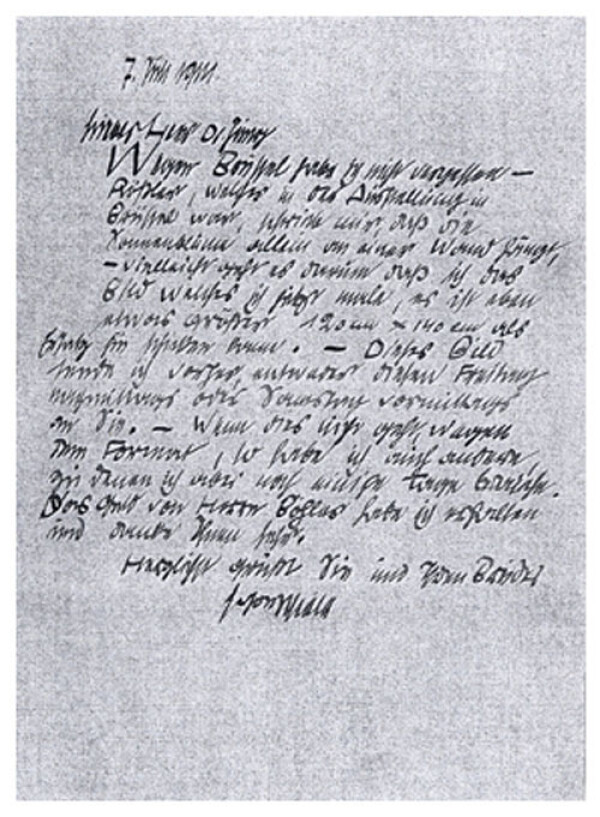 7. Juli 1911.
Lieber Herr Dr
Wegen Brüssel habe ich nicht vergessen –
welcher in der Ausstellung in
Brüssel war, schrieb mir daß die
Sonnenblume allein an einer Wand hängt,
– vielleicht geht es darum daß ich das
Bild welches ich jetzt male, es ist eben
etwas größer 120 cm × 140 cm als
Ersatz hin schicken kann. – Dieses Bild
sende ich vorher, entweder diesen Freitag
nachmittags oder Samstag vormittags
an Sie. – Wenn dies nicht geht, wegen
dem Format, so habe ich auch andere
zu denen ich aber noch einige Tage brauche.
Das Geld von Herrn habe ich erhalten
und danke Ihnen sehr.
Herzlichst grüßt Sie und Ihren Bruder